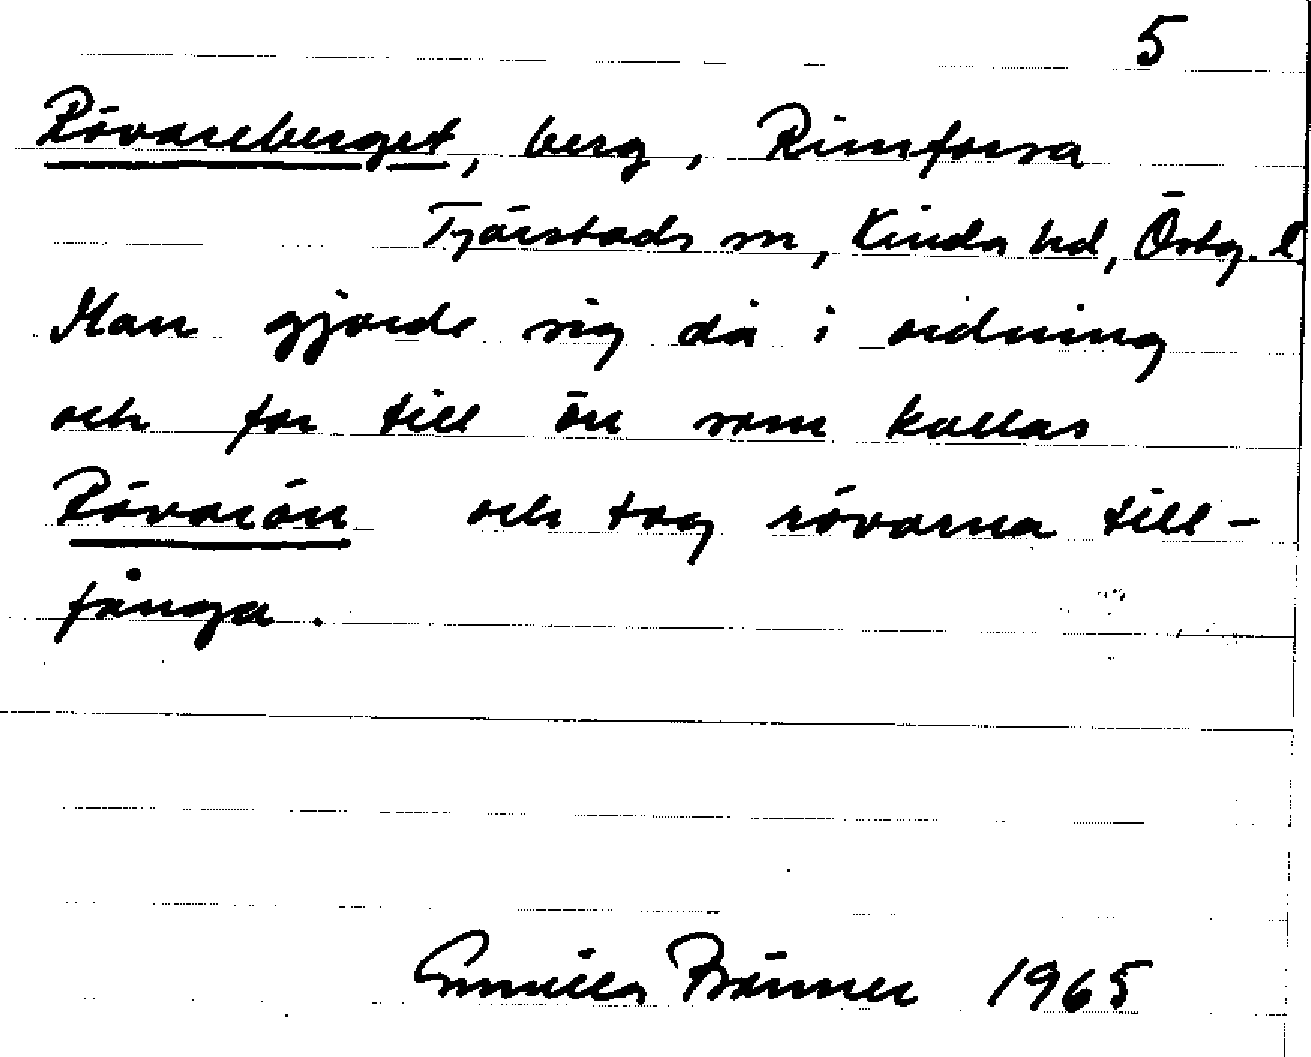 5
Rövareberget, berg, Rimforsa
Tjärstads sn, Kinda hd, Östg. l.
Man gjorde sig då i ordning
och for till ön som kallas
Rövarön och tog rövarna till-
fånga.
Gunilla Bränner 1965